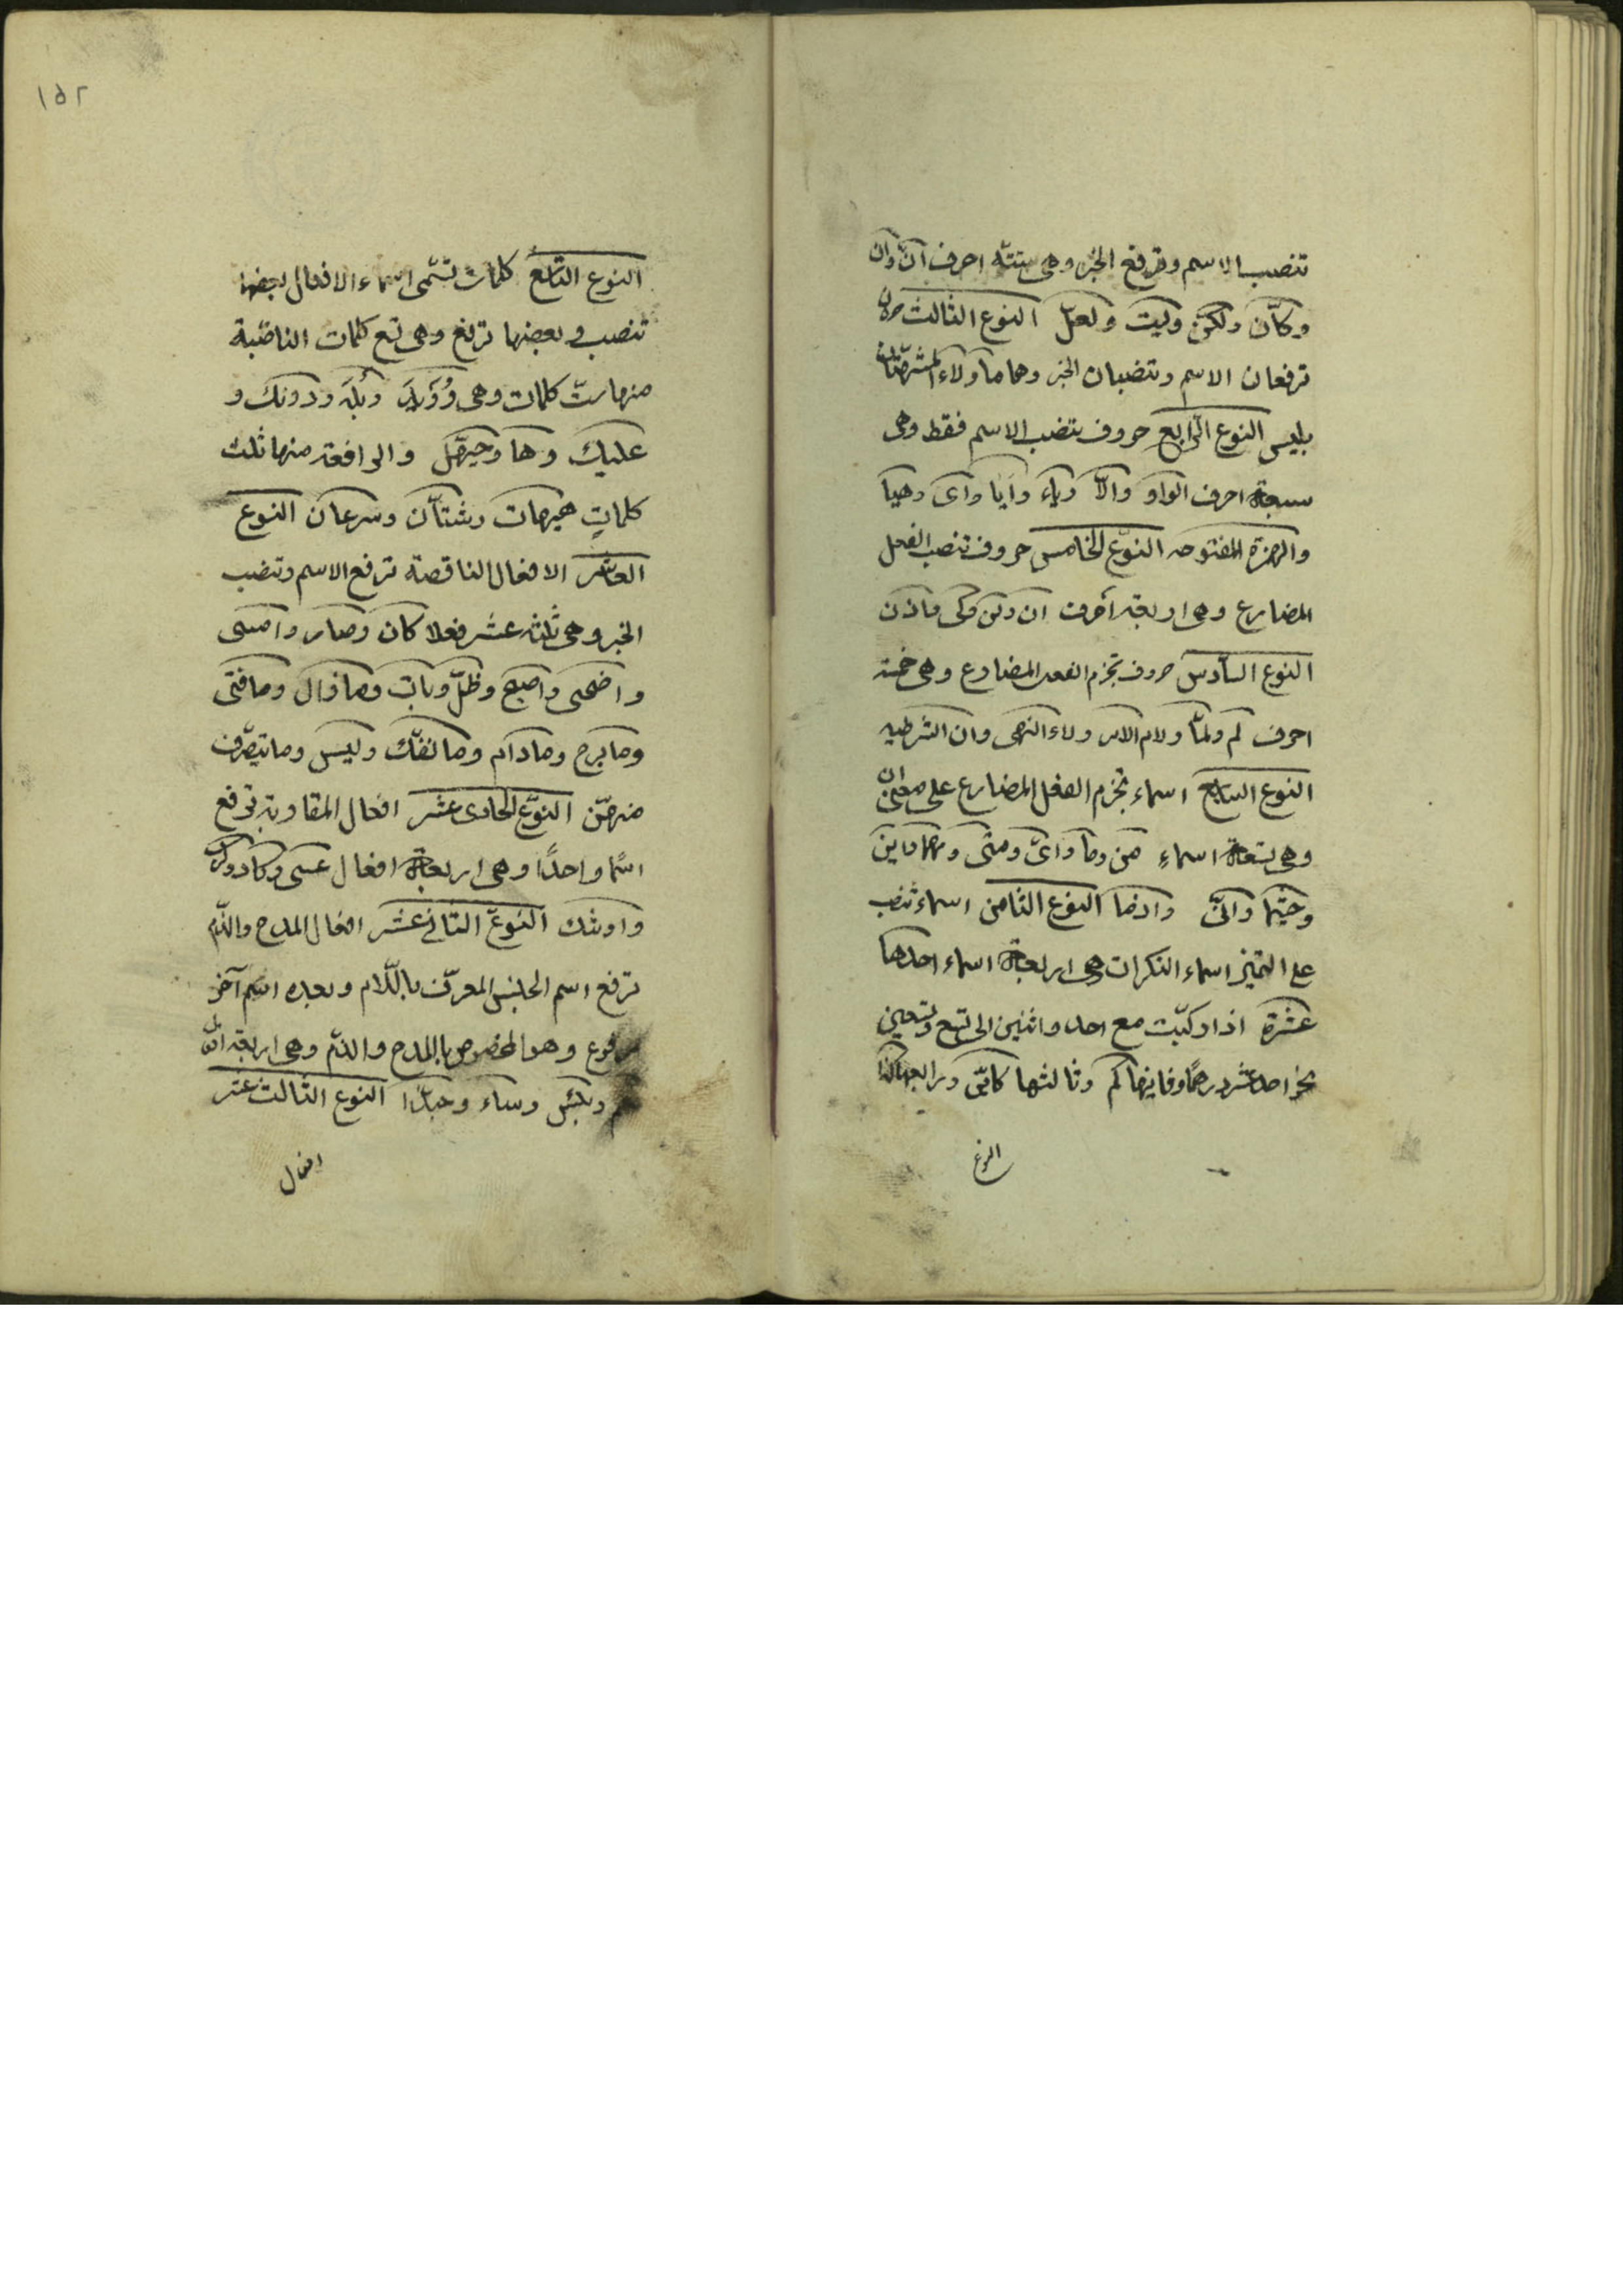 تنصب الاسم وترفع الخبر وهى ستة احرف انّ وان
وكانّ ولكنّ وليت ولعلّ النوع الثالث حرفان
ترفعان الاسم وتنصبان الخبر وهما ما ولاء المشبهتان
بليس النوع الرابع حروف تنصب الاسم فقط وهى
سبعة احرف الواو والّا وياء وايا واى وهيا
والهمزة المفتوحه النوع الخامس حروف تنصب الفعل
المضارع وهى اربعة أحرف ان ولن وكى واذن
النوع السادس حروف تجزم الفعل المضارع وهى خمسة
احرف لم ولمّا ولام الامر ولاء النهى وان الشرطيه
النوع السابع اسماء تجزم الفعل المضارع على معنى ان
وهى تسعة اسماءِ من وما واىّ ومتى ومهما واين
وحيثما وانّى واذما النوع الثامن اسماء تنصب
على التميز اسماء النكرات وهى اربعة اسماء احدها
عشرة اذا ركبّت مع احد واثنين الى تسع وتسعين
نحو احد عشر درهمًا وثانيها كم وثالثها كايّن ورابعها كذا
النوع
١٥٢
النوع التاسع كلمات تسمّى اسماء الافعال بعضها
تنصب وبعضها ترفع وهى تسع كلمات الناصبة
منها ستّ كلمات وهى رُوَيدَ وبَلهَ ودونك و
عليك وها وحيّهل والرافعة منها ثلث
كلماتٍ هيهات وشتّان وسرعان النوع
العاشر الافعال الناقصة ترفع الاسم وتنصب
الخبر وهى ثلثة عشر فعلا كان وصار وامسى
واضحى واصبح وظلّ وبات وما زال وما فتى
وما برح وما دام وما نفّك وليس وما يتصّرف
منهنّ النوع الحادى عشر افعال المقاربة ترفع
اسمًا واحدًا وهى اربعة افعال عسى وكاد وكرب
واوشك النوع الثانى عشر افعال المدح والذّم
ترفع اسم الجنس المعرّف باللّام وبعده اسم آخر
مرفوع وهو المخصوص بالمدح والذمّ وهى اربعة افعال
نعم وبئس وساء وحبذا النوع الثالث عشر
افعال